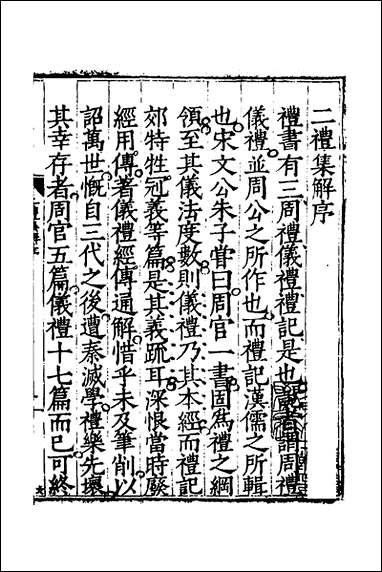 二禮集解序
禮書有三周禮儀禮禮記是也者謂周禮
儀禮並周公之所作也而禮記漢儒之所輯
也宋文公朱子甞曰周官一書固爲禮之綱
領至其儀法度數則儀禮乃其本經而禮記
郊特牲冠義等篇是其義疏耳深恨當時廢
經用傳著儀禮經傳通解惜乎未及筆削以
詔萬世慨自三代之後遭秦滅學禮樂先壞
其幸存者周官五篇儀禮十七篇而已可終